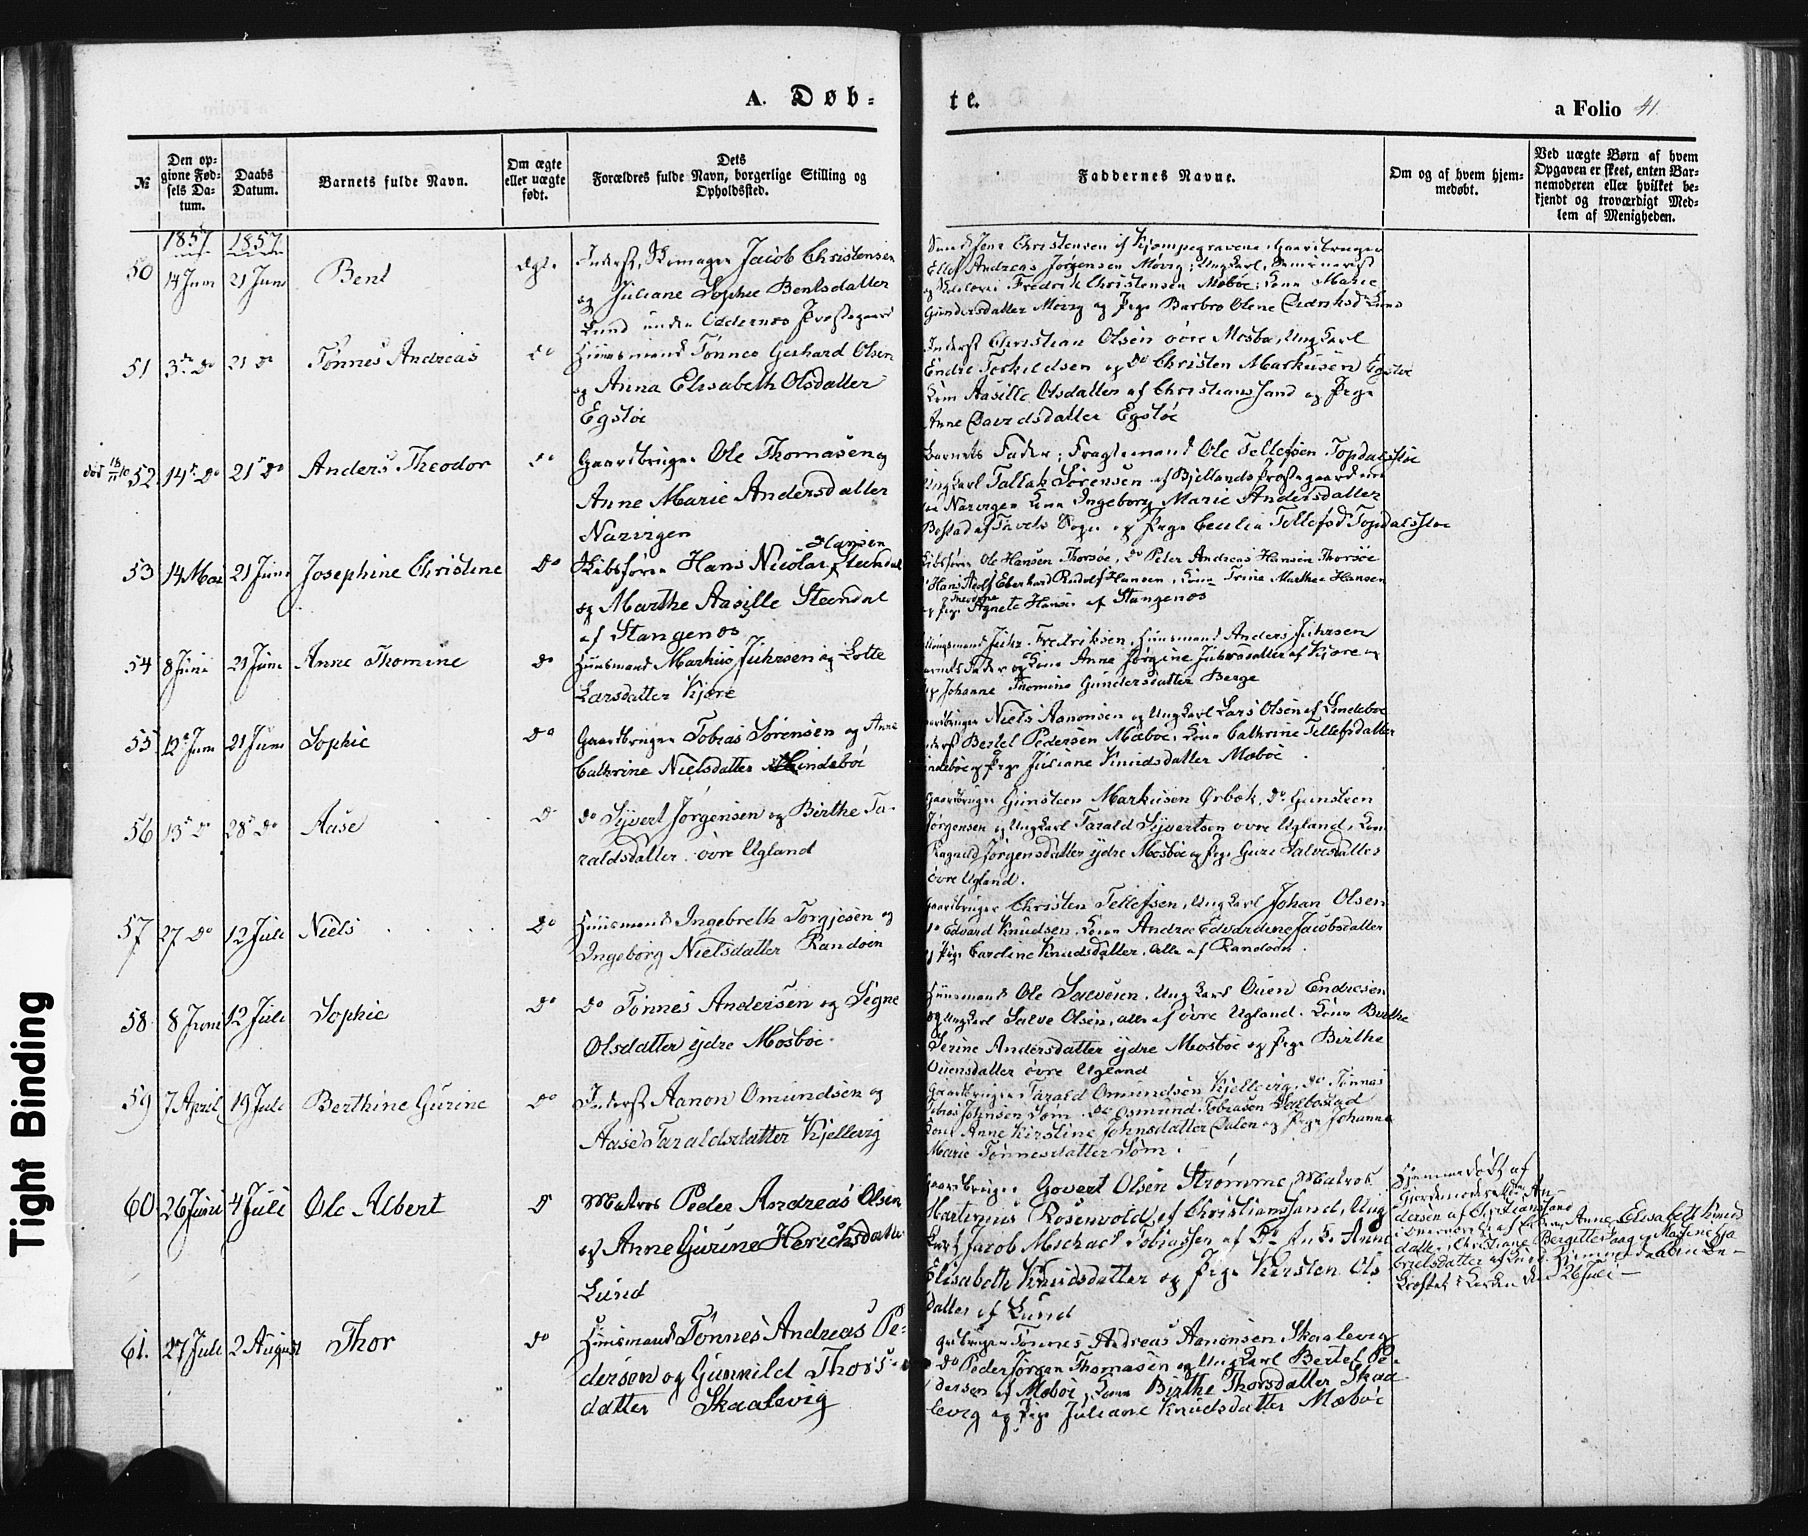 A. Døb-
te.
a Folio 41.
№
Den op-
givne Fød-
sels Da-
tum.
Daabs
Datum.
Barnets fulde Navn.
Om ægte
eller uægte
født.
Dets
Forældres fulde Navn, borgerlige Stilling og
Opholdssted.
Faddernes Navne.
Om og af hvem hjem-
medøbt.
Ved uægte Børn af hvem
Opgaven er skeet, enten Bar-
nemoderen eller hvilket be-
kjendt og troværdigt Med-
lem af Menigheden.
1857
1857
50
14 Juni
21 Juni
Bent
ægt.
Inderst, Jacob Christensen
og Juliane Sophie Bentsdatter
Lund under Oddernes Præstegaard
Jens Christensen af Kjempegravene, Gaardbruger
Ellef Andreas Jørgensen Møvig, Ungkarl, Seminarist
Fredrik Christensen Mebøe, Kone Marie
Gundersdatter Møvig og Pige Barbro Olene
51
3de Do
21 Do
Tønnes Andreas
Do
Huusmand Tønnes Gerhard Olsen
og Anna Elisabeth Olsdatter
Egsløe
Inderst Christian Olsen øvre Mosbø, Ungkarl
Endre Torkildsen og Do Christen Markusen Egsløe
Kone Aasille Olsdatter af Christianssand og Pige
Anne Davidsdatter Egsløe
død
52
14de Do
21de Do
Anders Theodor
Do
Gaardbruger Ole Thomasen og
Anne Marie Andersdatter
Narvigen
Barnets Fader, Fragtemand Ole Tellefsen Topdalsløe
Ungkarl Tallak Sørensen af Bjellands Præstegaard
Narvigen Kone Ingeborg Marie Andersdatter
Bostad af Tveits Sogn og Pige Cecilia Tellefsd Topdalsløe
53
14 Mai
21 Juni
Josephine Christine
Do
Skibsfører Hans Nicolai Hansen Steendal
og Marthe Aasille Steendal
af Stangenes
Skibsfører Ole Hansen Thorsøe, Do Peter Andreas Hansen Thorsøe
Hans Adolf Eberhard Rudolf Hansen, Kone Trine Marthea Hansen
og Pige Agnete Hansen af Stangenes
54
8 Juni
21 Juni
Anne Thomine
Do
Huusmand Markus Juhrsen og Lotte
Larsdatter Kjære
Juhr Fredriksen, Huusmand Anders Juhrsen
Barnets Fader og Kone Anne Jørgine Juhrsdatter af Kjære og
Pige Johanne Thomine Gundersdatter Berge
55
12 Juni
21 Juni
Sophie
Do
Gaardbruger Tobias Sørensen og Anne
Cathrine Nielsdatter Lindebøe
Gaardbruger Niels Aanonsen og Ungkarl Lars Olsen af Lindebøe
Inderst Bertel Pedersen Mæbøe, Kone Cathrine Tellefsdatter
Lindebøe og Pige Juliane Knudsdatter Mæbøe
56
13de Do
28de Do
Aase
Do
Do Syvert Jørgensen og Birthe Ta-
raldsdatter øvre Ugland
Gaardbruger Gunsteen Markusen Ørbek, Do Gunsteen
Jørgensen og Ungkarl Tarald Syvertsen øvre Ugland, Kone
Ragnild Jørgensdatter ydre Mosbøe og Pige Guri Salvesdatter
øvre Ugland.
57
27 Do
12 Juli
Niels
Do
Huusmand Ingebreth Torgjesen og
Ingeborg Nielsdatter Randøen
Gaardbruger Christen Tellefsen, Ungkarl Johan Olsen
Do Edvard Knudsen, Kone Andrea Edvardine Jacobsdatter
og Pige Caroline Knudsdatter, alle af Randøen.
58
8 Juni
12 Juli
Sophie
Do
Do Tønnes Andersen og Signe
Olsdatter ydre Mosbøe.
Huusmand Ole Salvesen, Ungkarl Ouen Endresen
og Ungkarl Salve Olsen, alle af øvre Ugland. Kone Birthe
Serine Andersdatter ydre Mosbøe og Pige Birthe
Ouensdatter øvre Ugland
59
7 April
19 Juli
Berthine Gurine
Do
Inderst Aanon Omundsen og
Aase Taraldsdatter Kjellevig
Gaardbruger Tarald Omundsen Kjellevig, Do Tønnes
Tobias Johnsen Søm, Do Osmund Tobiasen
Kone Anne Kirstine Johnsdatter Dalen og Pige Johanne
Marie Tønnesdatter Søm.
60
26 Juni
4 Juli
Ole Albert
Do
Matros Peder Andreas Olsen
og Anne Gurine Henrichsdatter
Lund
Gaardbruger Govert Olsen Strømme, Matros
Martinius Rosenvold af Christianssand, Ung
karl Jacob Michael Tobiassen af Anne
Elisabeth Knudsdatter og Pige Kirsten Ols
datter af Lund
Hjemmedøbt af
Gjordemoder An
dersen af Christianssand
i Overværelse af Anne Elisabeth Knuds
datter, Christiane Bergitte og Maline Ga
brielsdatter af Lund. Hjemmedaaben be-
kræftet i Kirken den 26 Juli
61.
27 Juli
2 August
Thor
Do
Huusmand Tønnes Andreas Pe-
dersen og Gunnild Thors-
datter Skaalevig
Gaardbruger Tønnes Andreas Aanonsen Skaalevig
Do Peder Jørgen Thomasen og Ungkarl Bertel Pe-
dersen af Mæbøe, Kone Birthe Thorsdatter Skaa
levig og Pige Juliane Knudsdatter Mæbøe
Tight Binding